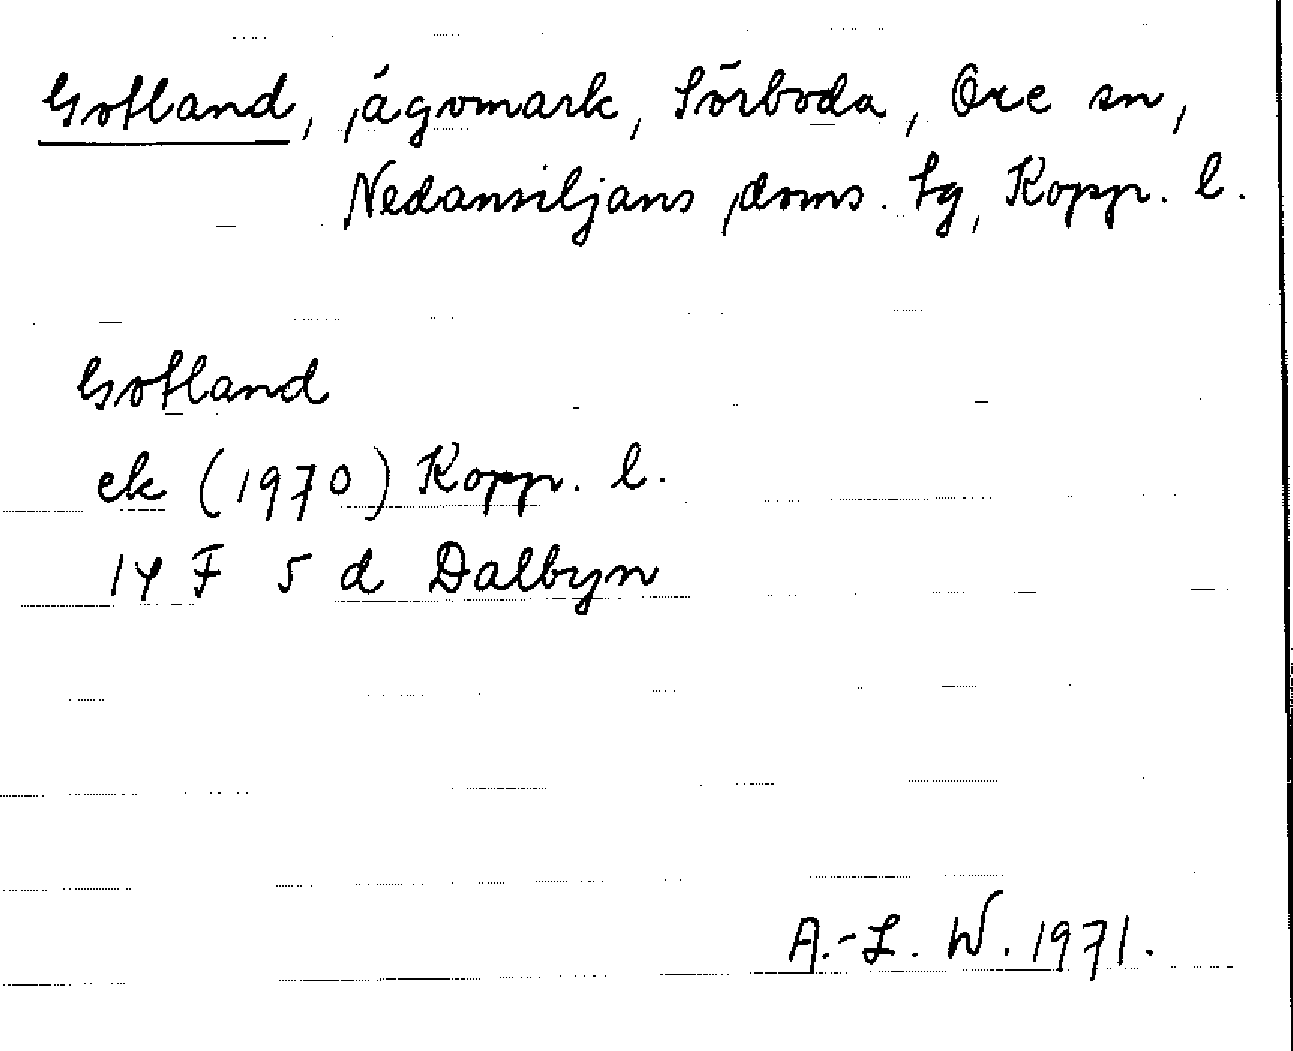 Gotland, ägomark, Sörboda, Ore sn,
Nedansiljans doms. tg, Kopp. l.
Gotland
ek (1970) Kopp. l.
14 F 5 d Dalbyn
A.-L. W. 1971.